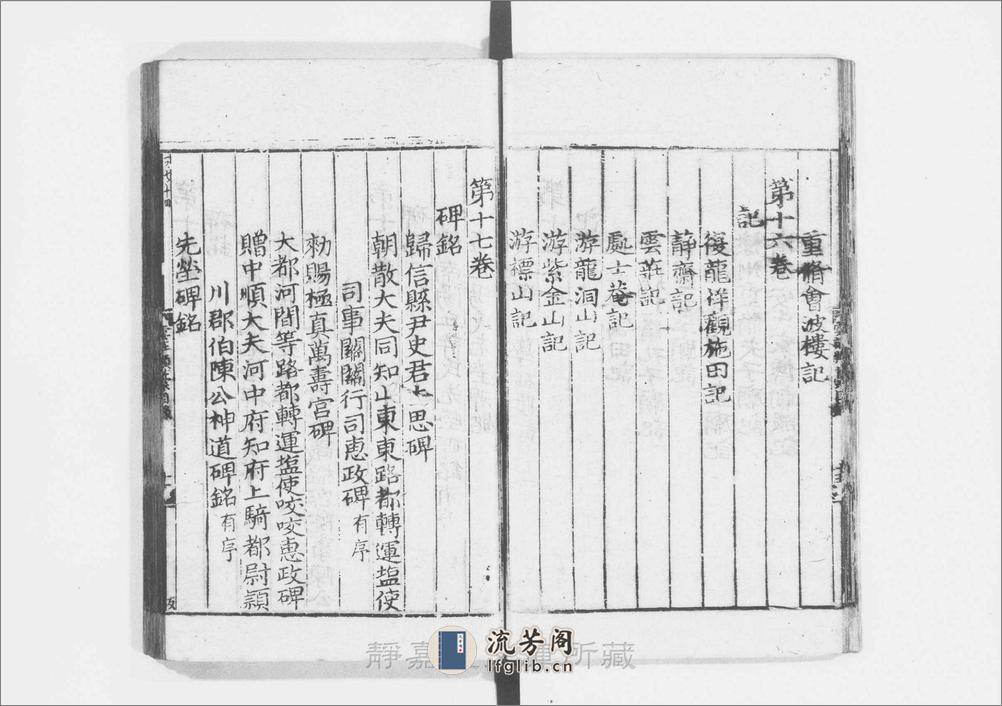 重脩會波樓記
第十六卷
記
復龍祥觀施田記
靜齋記
雲莊記
處士菴記
游龍洞山記
游紫金山記
游標山記
第十七卷
碑銘
歸信縣尹史君去思碑
朝散大夫同知山東東路都轉運塩使
司事關關行司惠政碑有序
勑賜極真萬壽宮碑
大都河間等路都轉運塩使咬咬惠政碑
贈中順大夫河中府知府上騎都尉潁
川郡伯陳公神道碑銘有序
先塋碑銘
靜嘉 所藏
流芳阁
lfglib.cn